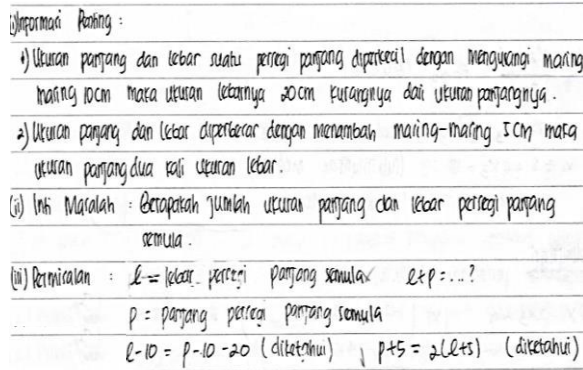 (i) Informasi Penting :
1) Ukuran panjang dan lebar suatu persegi panjang diperkecil dengan mengurangi masing
masing 10cm maka ukuran lebarnya 20cm kurangnya dari ukuran panjangnya.
2) Ukuran panjang dan lebar diperbesar dengan menambah masing-masing 5cm maka
ukuran panjang dua kali ukuran lebar.
(ii) Inti Masalah : Berapakah jumlah ukuran panjang dan lebar persegi panjang
semula.
(iii) Permisalan : l = lebar persegi panjang semula l+p = ...?
p = panjang persegi panjang semula
l-10 = p-10-20 (diketahui) , p+5 = 2(l+5) (diketahui)